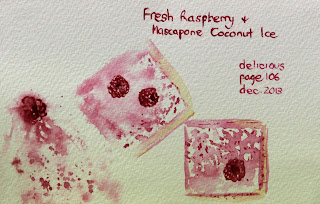 Fresh Raspberry &
Mascapone Coconut Ice
delicious
page 106
dec. 2013